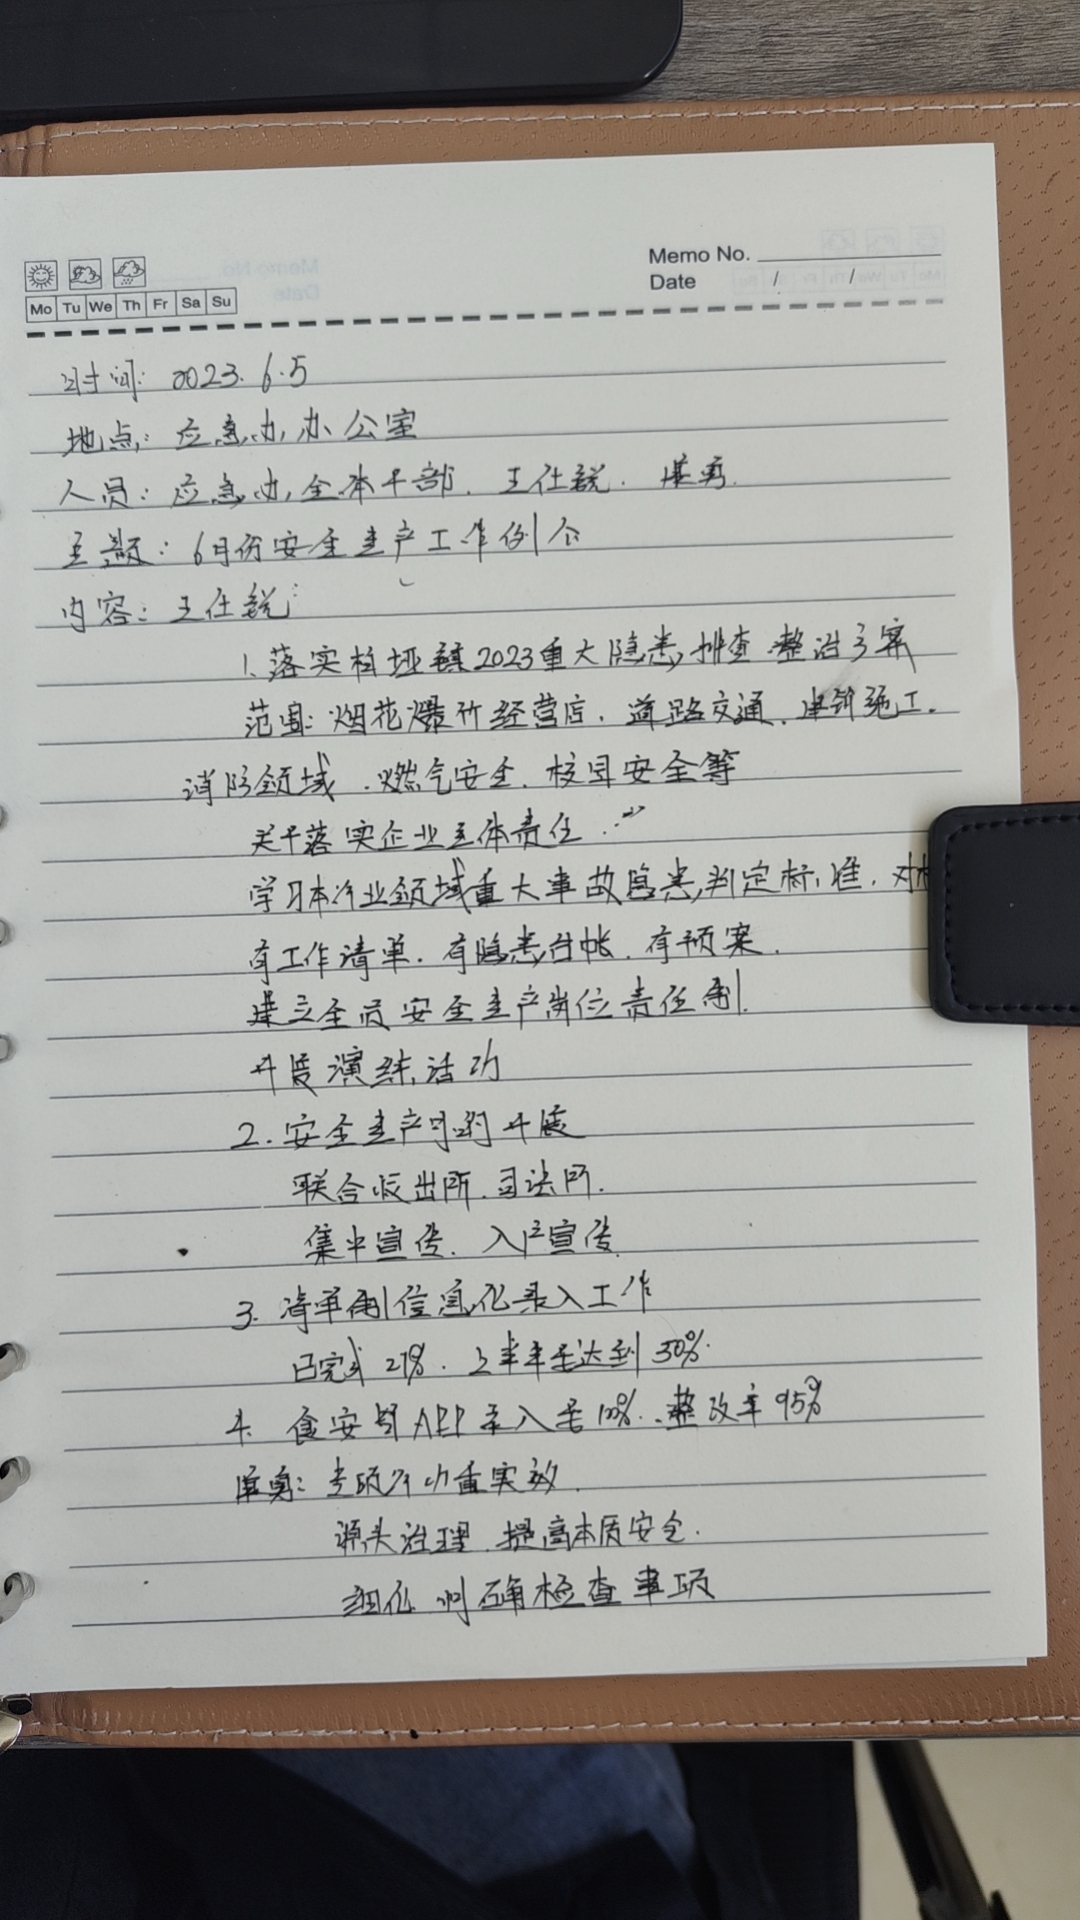 Memo No.
Date / /
Mo Tu We Th Fr Sa Su
时间: 2023.6.5
地点: 应急办办公室
人员: 应急办全体干部. 王仕锐. 勇.
主题: 6月份安全生产工作例会
内容: 王仕锐:
1.落实柏垭镇2023重大隐患排查整治方案
范围: 烟花爆竹经营店. 道路交通. 建筑施工.
消防领域. 燃气安全. 校园安全等
关于落实企业主体责任.
学习本行业领域重大事故隐患判定标准. 对
有工作清单. 有隐患台帐. 有预案.
建立全员安全生产岗位责任制.
开展演练活动
2. 安全生产月的开展
联合派出所. 司法所.
集中宣传. 入户宣传
3. 清单制信息化录入工作
已完成21%. 上半年要达到50%.
4. 食安 APP录入 10%. 整改率95%
勇: 专项行动重实效.
源头治理. 提高本质安全.
细化 明确检查事项